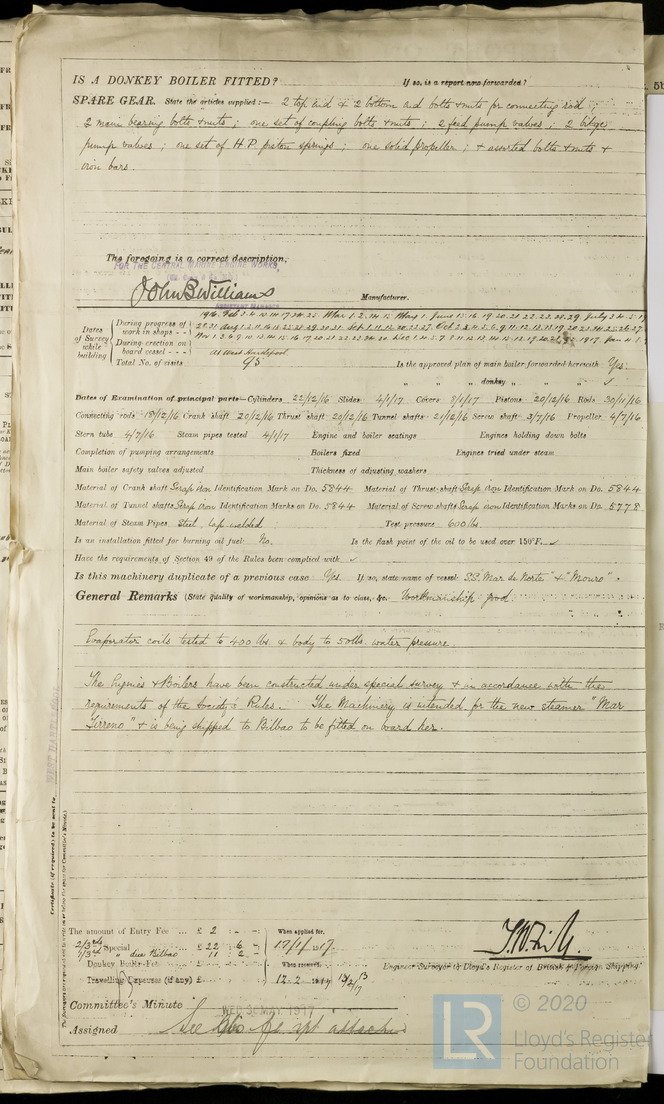 IS A DONKEY BOILER FITTED? If so, is a report now forwarded?
SPARE GEAR. State the articles supplied:— 2 top end & 2 bottom end bolts & nuts for connecting rod;
2 main bearing bolts & nuts; one set of coupling bolts & nuts; 2 feed pump valves; 2 bilge
pump valves; one set of H.P. piston springs; one solid propeller; & assorted bolts & nuts &
iron bars.
The foregoing is a correct description,
FOR THE CENTRAL MARINE ENGINE WORKS
John B Williams
ASSISTANT MANAGER
Manufacturer.
Dates of Survey while building
During progress of work in shops - -
1916. Feb
During erection on board vessel - - -
At West Hartlepool
Total No. of visits 95
Is the approved plan of main boiler forwarded herewith Yes.
" " " donkey " " " ✓
Dates of Examination of principal parts—Cylinders 22/12/16 Slides 4/1/17 Covers 8/1/17 Pistons 20/12/16 Rods 30/11/16
Connecting rods 18/12/16 Crank shaft 20/12/16 Thrust shaft 20/12/16 Tunnel shafts 21/12/16 Screw shaft 3/7/16 Propeller 4/7/16
Stern tube 4/7/16 Steam pipes tested 4/1/17 Engine and boiler seatings Engines holding down bolts
Completion of pumping arrangements Boilers fixed Engines tried under steam
Main boiler safety valves adjusted Thickness of adjusting washers
Material of Crank shaft Scrap iron Identification Mark on Do. 5844 Material of Thrust shaft Scrap iron Identification Mark on Do. 5844
Material of Tunnel shafts Scrap iron Identification Marks on Do. 5844 Material of Screw shafts Scrap iron Identification Marks on Do. 5778
Material of Steam Pipes Steel, lap-welded Test pressure 600 lbs.
Is an installation fitted for burning oil fuel No. Is the flash point of the oil to be used over 150°F. ✓
Have the requirements of Section 49 of the Rules been complied with ✓
Is this machinery duplicate of a previous case Yes. If so, state name of vessel S.S. "Mar de Norte" & "Mouro".
General Remarks (State quality of workmanship, opinions as to class, &c. Workmanship good.
Evaporator coils tested to 400 lbs. & body to 50 lbs. water pressure.
The Engines & Boilers have been constructed under special survey & in accordance with the
requirements of the Society's Rules. The Machinery is intended for the new steamer "Mar
Tirreno" & is being shipped to Bilbao to be fitted on board her.
WEST HARTLEPOOL
Certificate (if required) to be sent to
The amount of Entry Fee ... £ 2 : - : - When applied for,
2/3rds Special ... £ 22 : 6 : - 17/1/1917.
1/3rd " due Bilbao 11 : 2 : -
Donkey Boiler Fee ... £ When received,
Travelling Expenses (if any) £
Engineer Surveyor to Lloyd's Register of British & Foreign Shipping
Committee's Minute WED 30 MAY 1917
Assigned See
LR © 2020
Lloyd's Register
Foundation